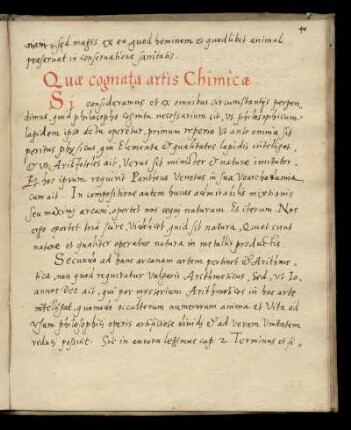 40
nam, sed magis ex eo quod hominem et quodlibet animal
præservat in conservatione sanitatis.
Quæ cognata artis Chimicæ
Si consideramus et ex omnibus circumstantijs perpen
dimus, quid philosopho cognitu necessarium sit, ut philosophicum
lapidem ipse de hoc operetur, primum reperio ut ante omnia sit
peritus physicus, qui Elementa et qualitates lapidis intelligat,
et ut Aristoteles ait, verus sit imitator et naturæ imitator.
Et hoc ipsum requirit Pantheus Venetus in sua Voarchadumia
cum ait. In compositione autem huius admirabilis mixtionis
seu maximi arcani, oportet nos sequi naturam. Et iterum Nos
ergo oportet scire, videlicet, quid sit natura, Quot sunt
naturæ et qualiter operatur natura in metallis producendis
Secundo ad hanc arcanam artem pertinet et Arithme,
tica, non quod requiratur vulgaris Arithmeticus, Sed, ut Io,
annes Dee ait, qui per mysterium Arithmeticos in hac arte
intelligat, quomodo occultorum numerorum anima et vita ad
usum philosophici operis artificiose dividi et ad veram unitatem
reduci possint. Sic in aurora legimus cap. 2 Terminus et